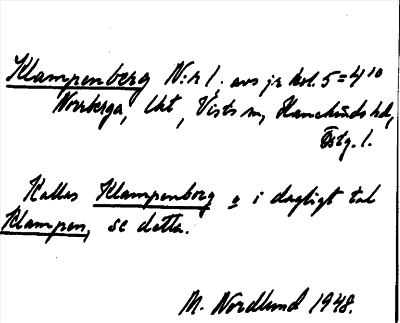 Klampenberg N:r 1, avs jr kol. 5 = 4 10
Norrberga, lht, Vists sn, Hanekinds hd,
Östg. l.
Kallas Klampenborg o i dagligt tal
Klampen, se detta.
M. Nordlund 1948.